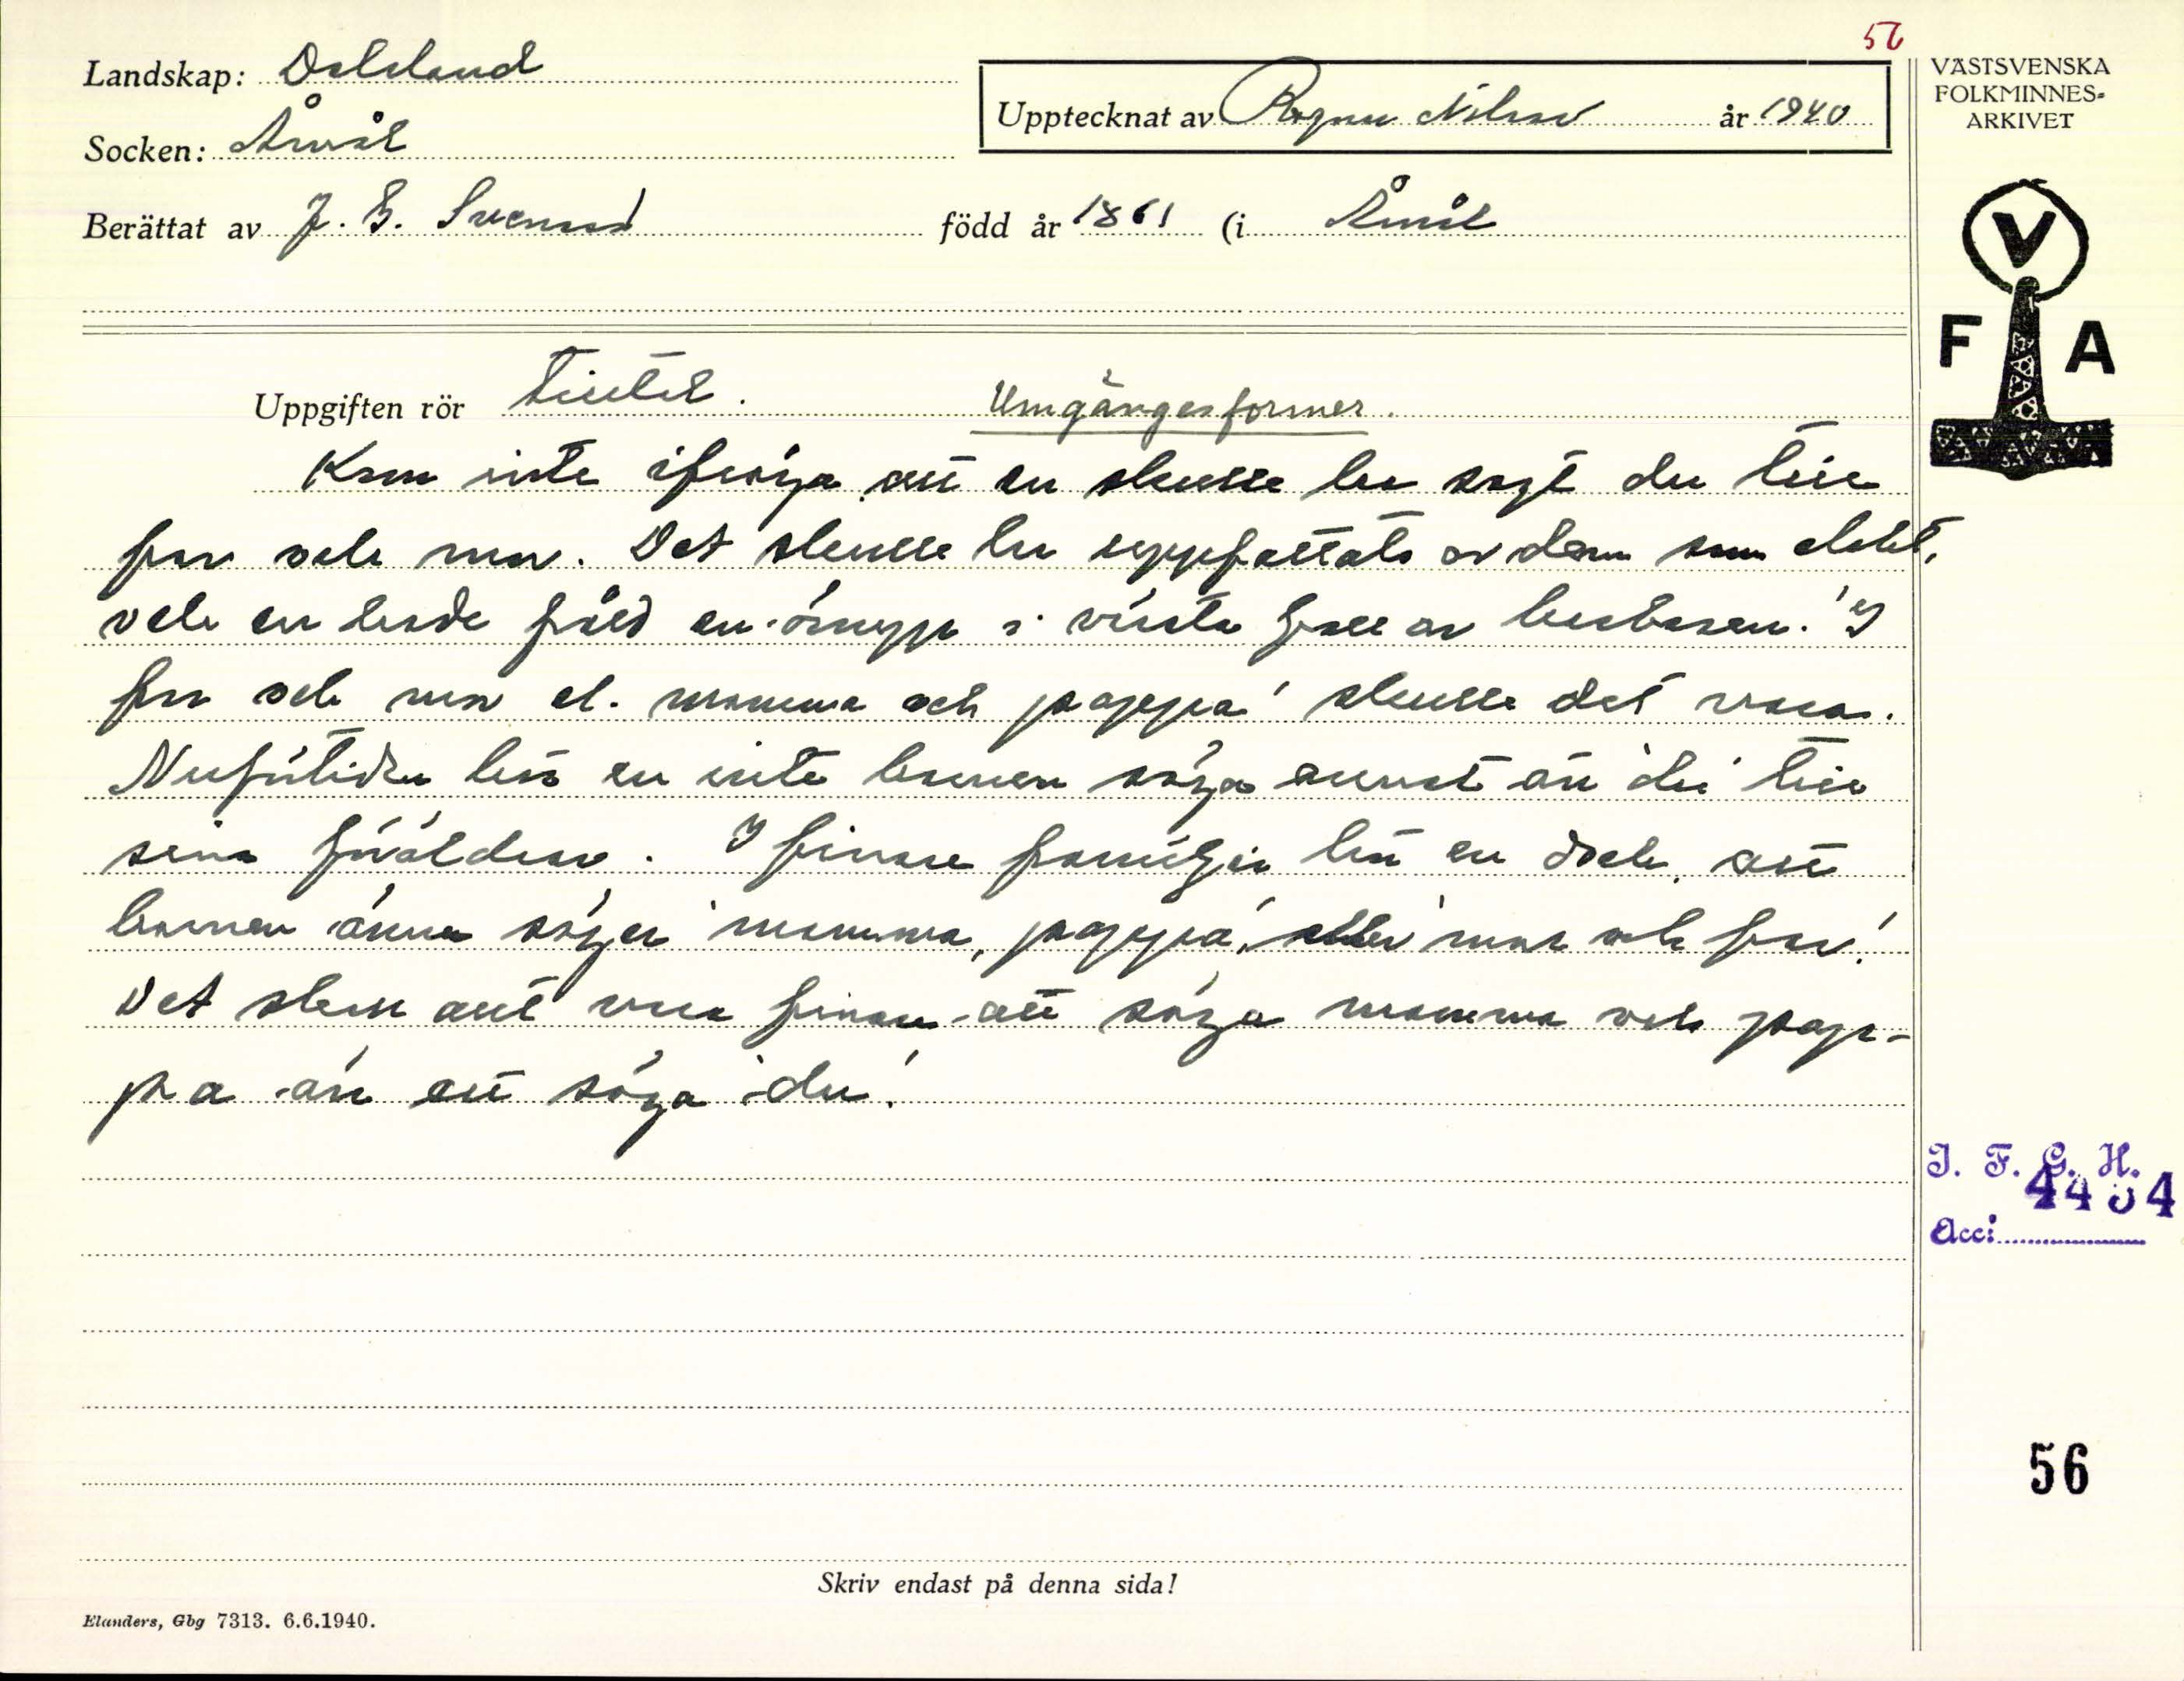 56
Landskap: Dalsland
Upptecknat av Ragnar Nilsson år 1940
VÄSTSVENSKA
FOLKMINNES-
ARKIVET
Socken: Åmål
Berättat av J. E. Svensson född år 1861 (i Åmål
V
F A
Uppgiften rör Titlar. Umgängesformer.
Kom inte ifråga att en skulle ha sagt du till
far och mor. Det skulle ha uppfattats av dem som elakt,
och en hade fått en örapp i värsta fall av husbasen. "I
far och mor el. mamma och pappa" skulle det vara.
Nuförtiden hör en inte barnen säga annat än "du" till
sina föräldrar. I finare familjer hör en dock, att
barnen ännu säger "mamma, pappa", eller "mor och far".
Det skall act vara finare att säga mamma och pap-
pa än att säga "du".
I. F. G. H.
Acc: 4434
56
Skriv endast på denna sida!
Elanders, Gbg 7313. 6.6.1940.